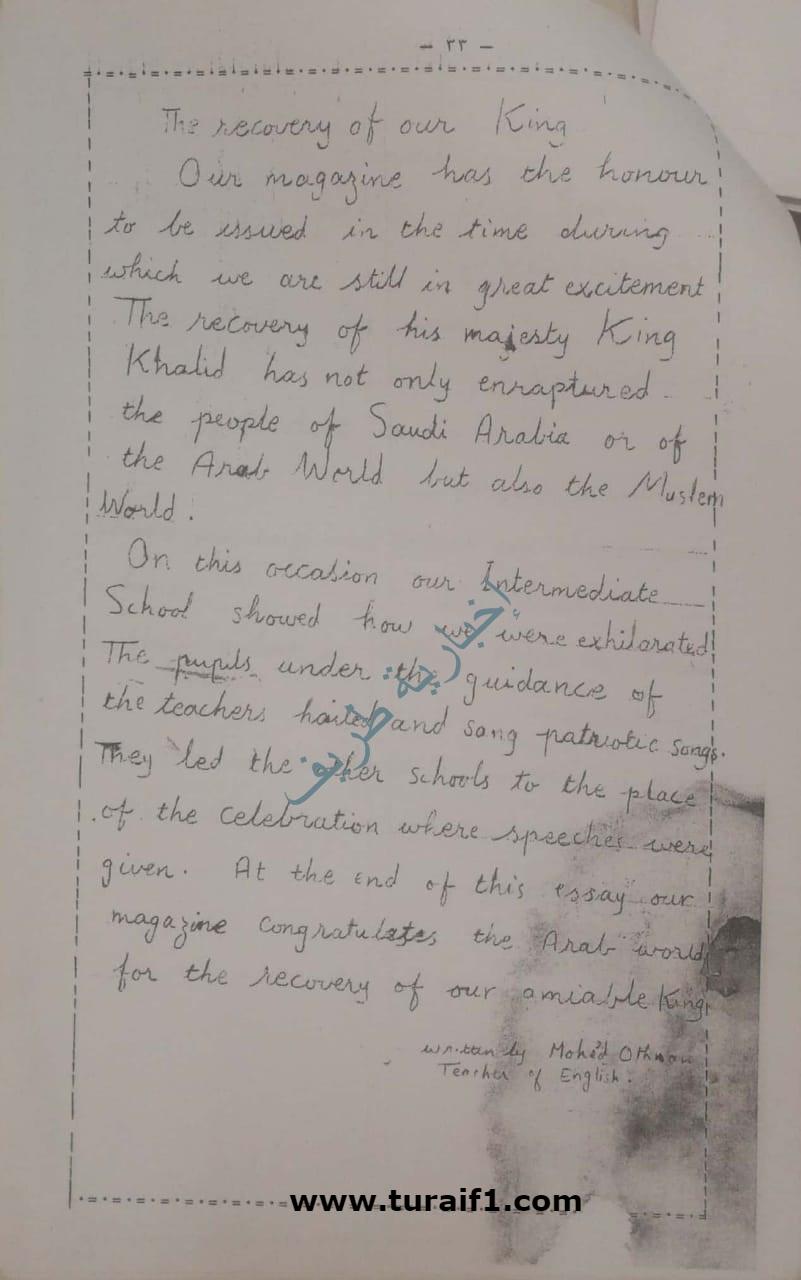 - ٣٣ -
The recovery of our King
Our magazine has the honour
to be issued in the time during
which we are still in great excitement
The recovery of his majesty King
Khalid has not only enraptured
the people of Saudi Arabia or of
the Arab World but also the Muslem
World.
On this occasion our Intermediate
School showed how we were exhilarated
The pupils under the guidance of
the teachers hailed and sang patriotic songs.
They led the other schools to the place
of the celebration where speeches were
given. At the end of this essay our
magazine congratulates the Arab world
for the recovery of our amiable King
written by Mohe'd Othman
Teacher of English.
إخبارية طريف
www.turaif1.com